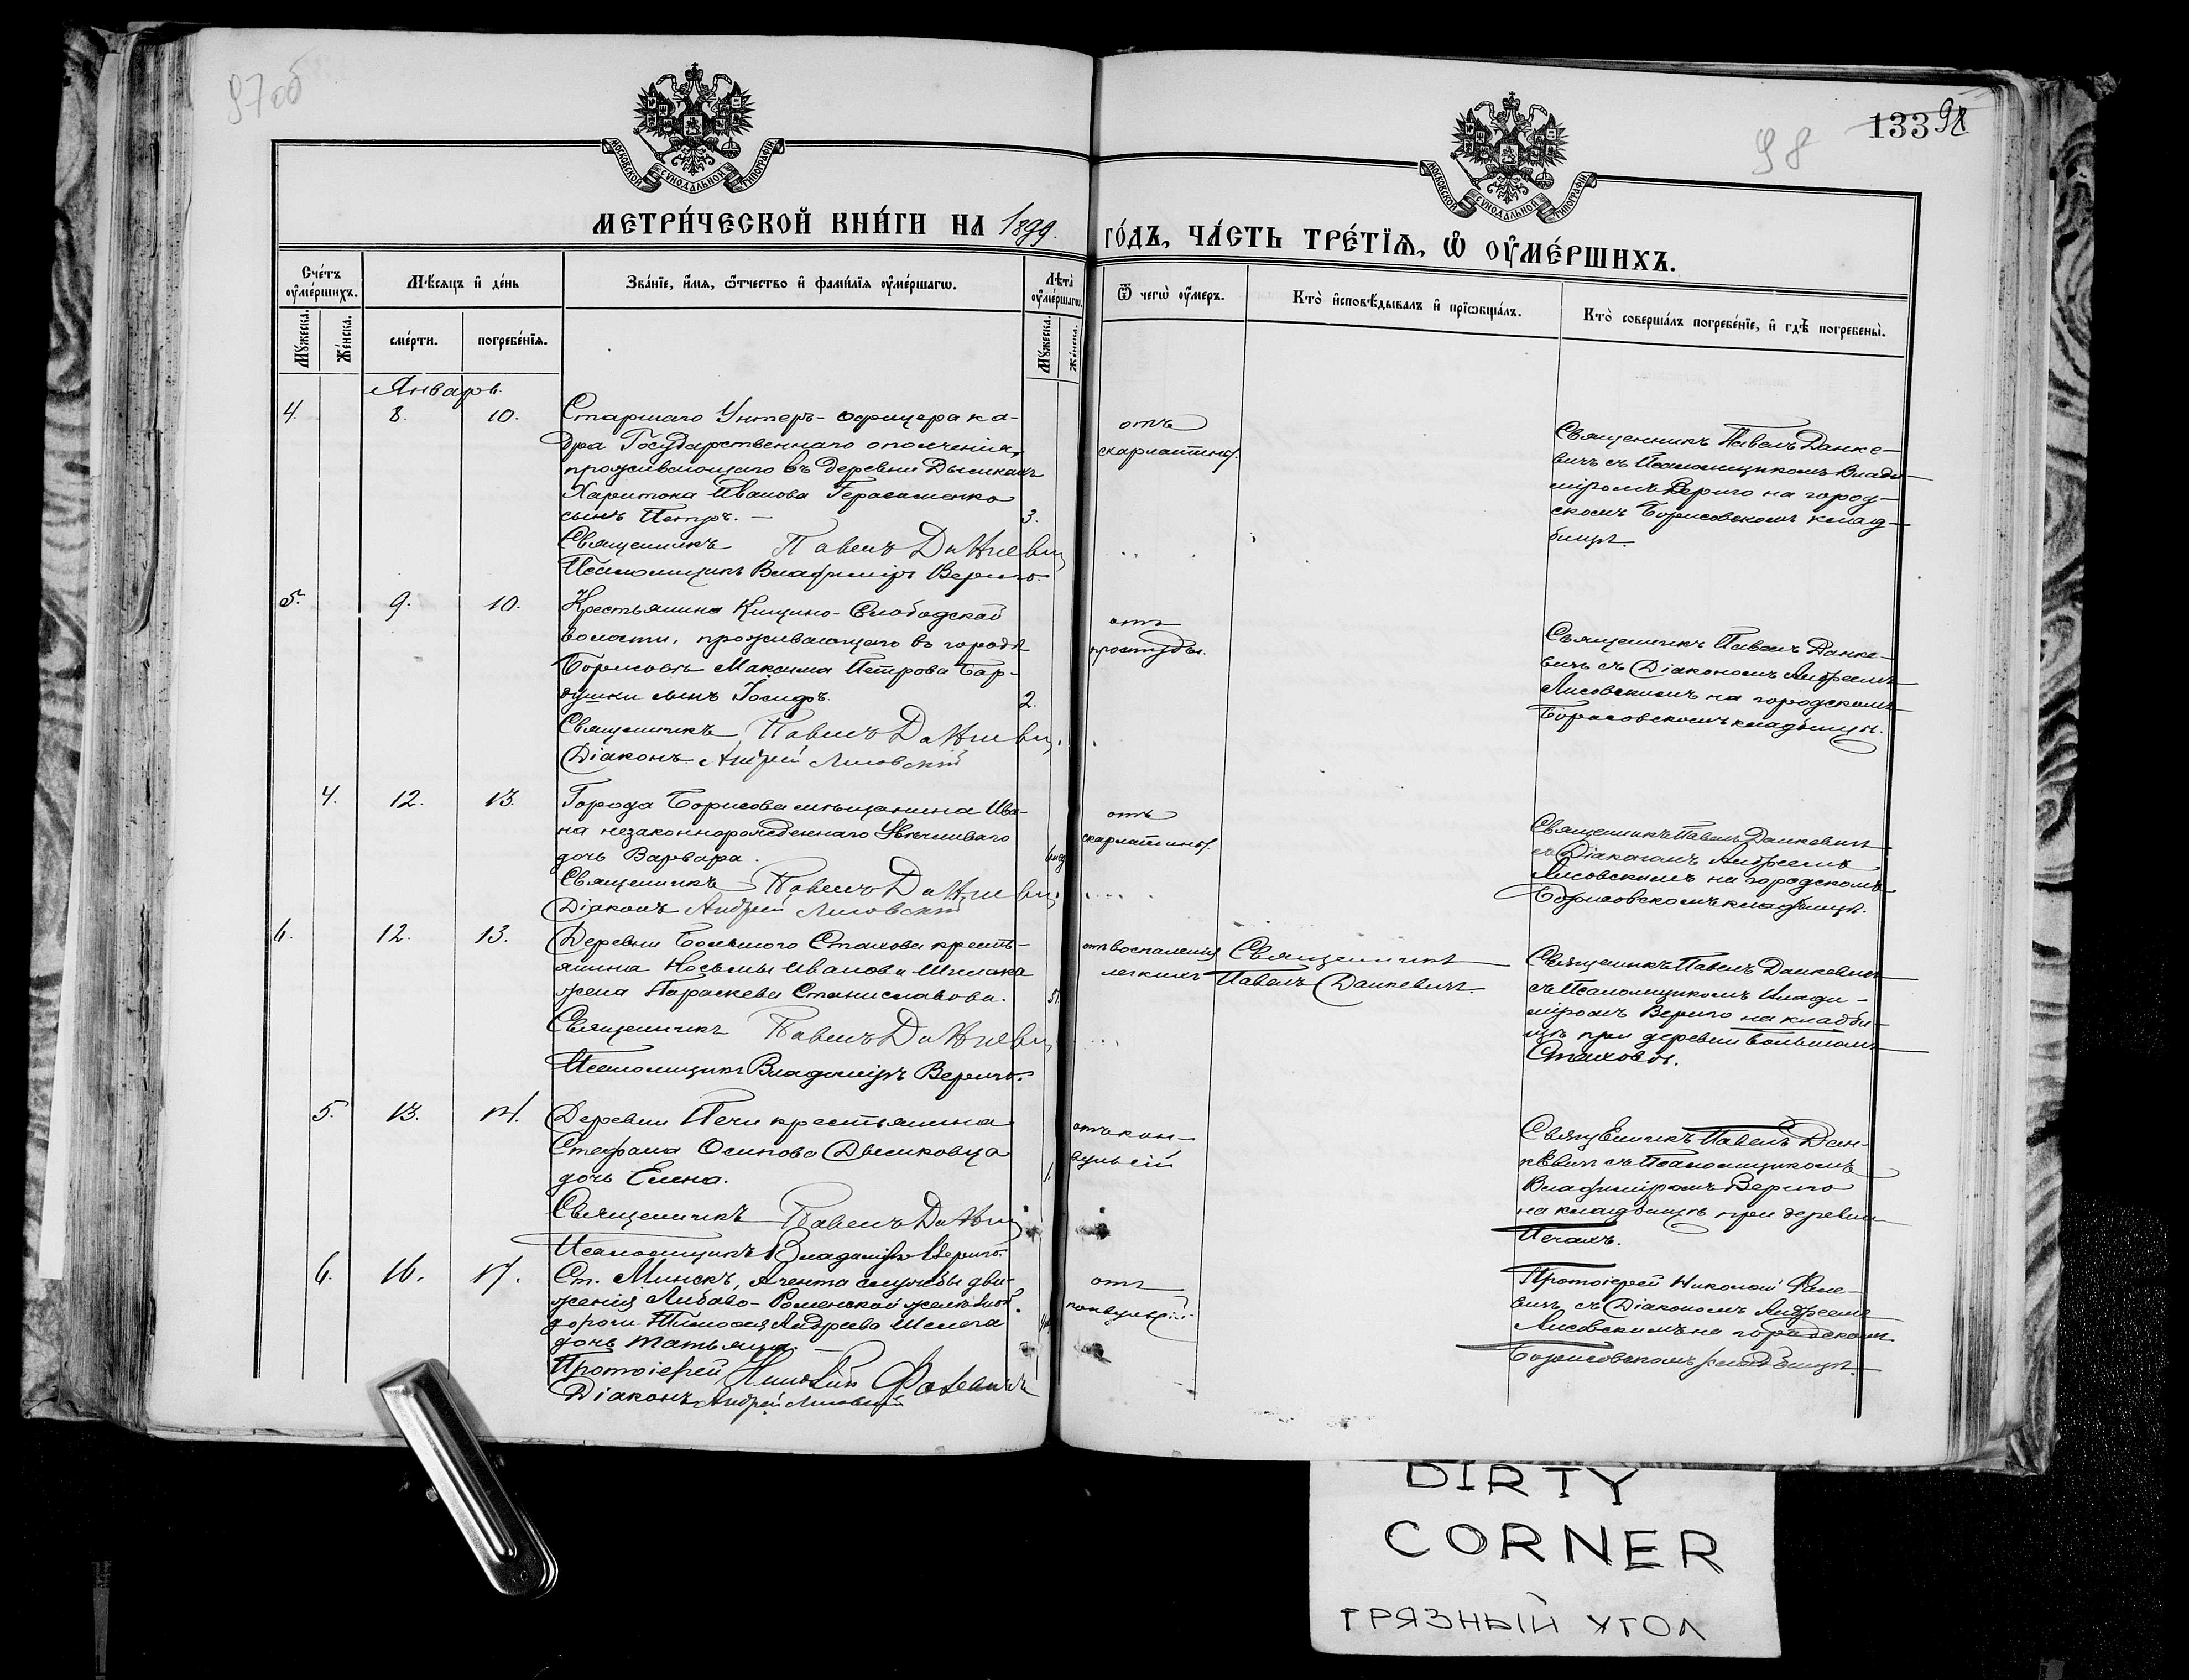 97об
98
133 98
МОСКОВСКОЙ СѴНОДАЛЬНОЙ ТИПОГРАФІИ
МОСКОВСКОЙ СѴНОДАЛЬНОЙ ТИПОГРАФІИ
МЕТРИ́ЧЕСКОЙ КНИ́ГИ НА 1899.
ГО́ДЪ, ЧА́СТЬ ТРЕ́ТЇѦ, Ѡ҆ ОУ҆МЕ́РШИХЪ.
Сче́тъ оу҆ме́ршихъ.
Мꙋ́жеска.
Же́нска.
Мѣ́сяцъ и҆ де́нь
сме́рти.
погребе́нїѧ.
Зва́нїе, и҆́мѧ, ѻ҆́тчество и҆ фами́лїѧ оу҆ме́ршагѡ.
Лѣ́та оу҆ме́ршагѡ.
Мꙋ́жеска.
Же́нска.
Ѿ чегѡ̀ оу҆́меръ.
Кто̀ и҆сповѣ́дывалъ и҆ прїѡбща́лъ.
Кто̀ соверша́лъ погребе́нїе, и҆ гдѣ̀ погребены̀.
Январь.
4. 8. 10.
Старшаго Унтеръ-офицера ка-
дра Государственнаго ополченія,
проживающаго въ деревни Дымкахъ
Харитона Иванова Герасименко
сынъ Петръ. — 3.
Священникъ Павелъ Данкевич
Псаломщикъ Владиміръ Вериго.
отъ
скарлатины.
Священникъ Павелъ Данке-
вичъ съ Псаломщикомъ Влади-
міромъ Вериго на город-
скомъ Борисовскомъ клад-
бищѣ.
5. 9. 10.
Крестьянина Кищино-Слободской
волости, проживающаго въ городѣ
Борисовѣ Максима Петрова Бар-
душки сынъ Іосифъ. 2.
Священникъ Павелъ Данкевич.
Діаконъ Андрей Лисовскій
отъ
простуды.
Священникъ Павелъ Данке-
вичъ съ Діакономъ Андреемъ
Лисовскимъ на городскомъ
Борисовскомъ кладбищѣ.
4. 12. 13.
Города Борисова мѣщанина Ива-
на незаконнорожденнаго
дочь Варвара. 6 нед
Священникъ Павелъ Данкевич
Діаконъ Андрей Лисовскій
отъ
скарлатины.
Священникъ Павелъ Данкевичъ
съ Діакономъ Андреемъ
Лисовскимъ на городскомъ
Борисовскомъ кладбищѣ.
6. 12. 13.
Деревни Большого Стахова кресть-
янина Косьмы Иванова Шпилака
жена Параскева Станиславова.
Священникъ Павелъ Данкевич
Псаломщикъ Владиміръ Вериго.
отъ воспаленія
легкихъ
Священникъ
Павелъ Данкевичъ.
Священникъ Павелъ Данкевичъ
съ Псаломщикомъ Влади-
міромъ Вериго на кладби-
щѣ при деревни Большомъ
Стаховѣ.
5. 13. 14.
Деревни Печи крестьянина
Стефана Осипова Дымковца
дочь Елена. 1.
Священникъ Павелъ Данкевич
Псаломщикъ Владиміръ Вериго.
отъ кон-
вульсій
Священникъ Павелъ Дан-
кевичъ съ Псаломщикомъ
Владиміромъ Вериго
на кладбищѣ при деревни
Печахъ.
6. 16. 17.
Ст. Минскъ, Агента службы дви-
женія Либаво-Роменской желѣзной
дороги Тимофея Андреева Шелега
дочь Татьяна. —
Протоіерей Николай Фалевичъ
Діаконъ Андрей Лисовскій
отъ
конвульсій.
Протоіерей Николай Фале-
вичъ съ Діакономъ Андреемъ
Лисовскимъ на городскомъ
Борисовскомъ кладбищѣ.
DIRTY
CORNER
ГРЯЗНЫЙ УГОЛ